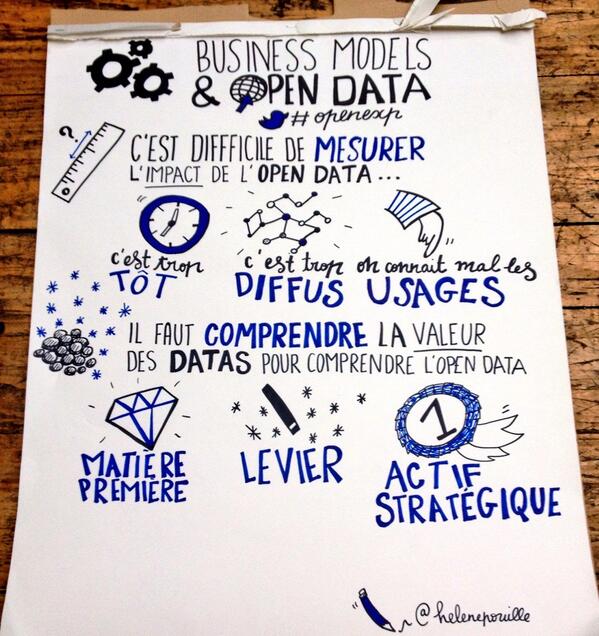 BUSINESS MODELS
& OPEN DATA
#openexp
?
C'EST DIFFFICILE DE MESURER
L'IMPACT DE L'OPEN DATA...
c'est trop
TÔT
c'est trop
DIFFUS
on connait mal les
USAGES
IL FAUT COMPRENDRE LA VALEUR
DES DATAS POUR COMPRENDRE L'OPEN DATA
MATIÈRE
PREMIÈRE
LEVIER
1
ACTIF
STRATÉGIQUE
@helenepouille